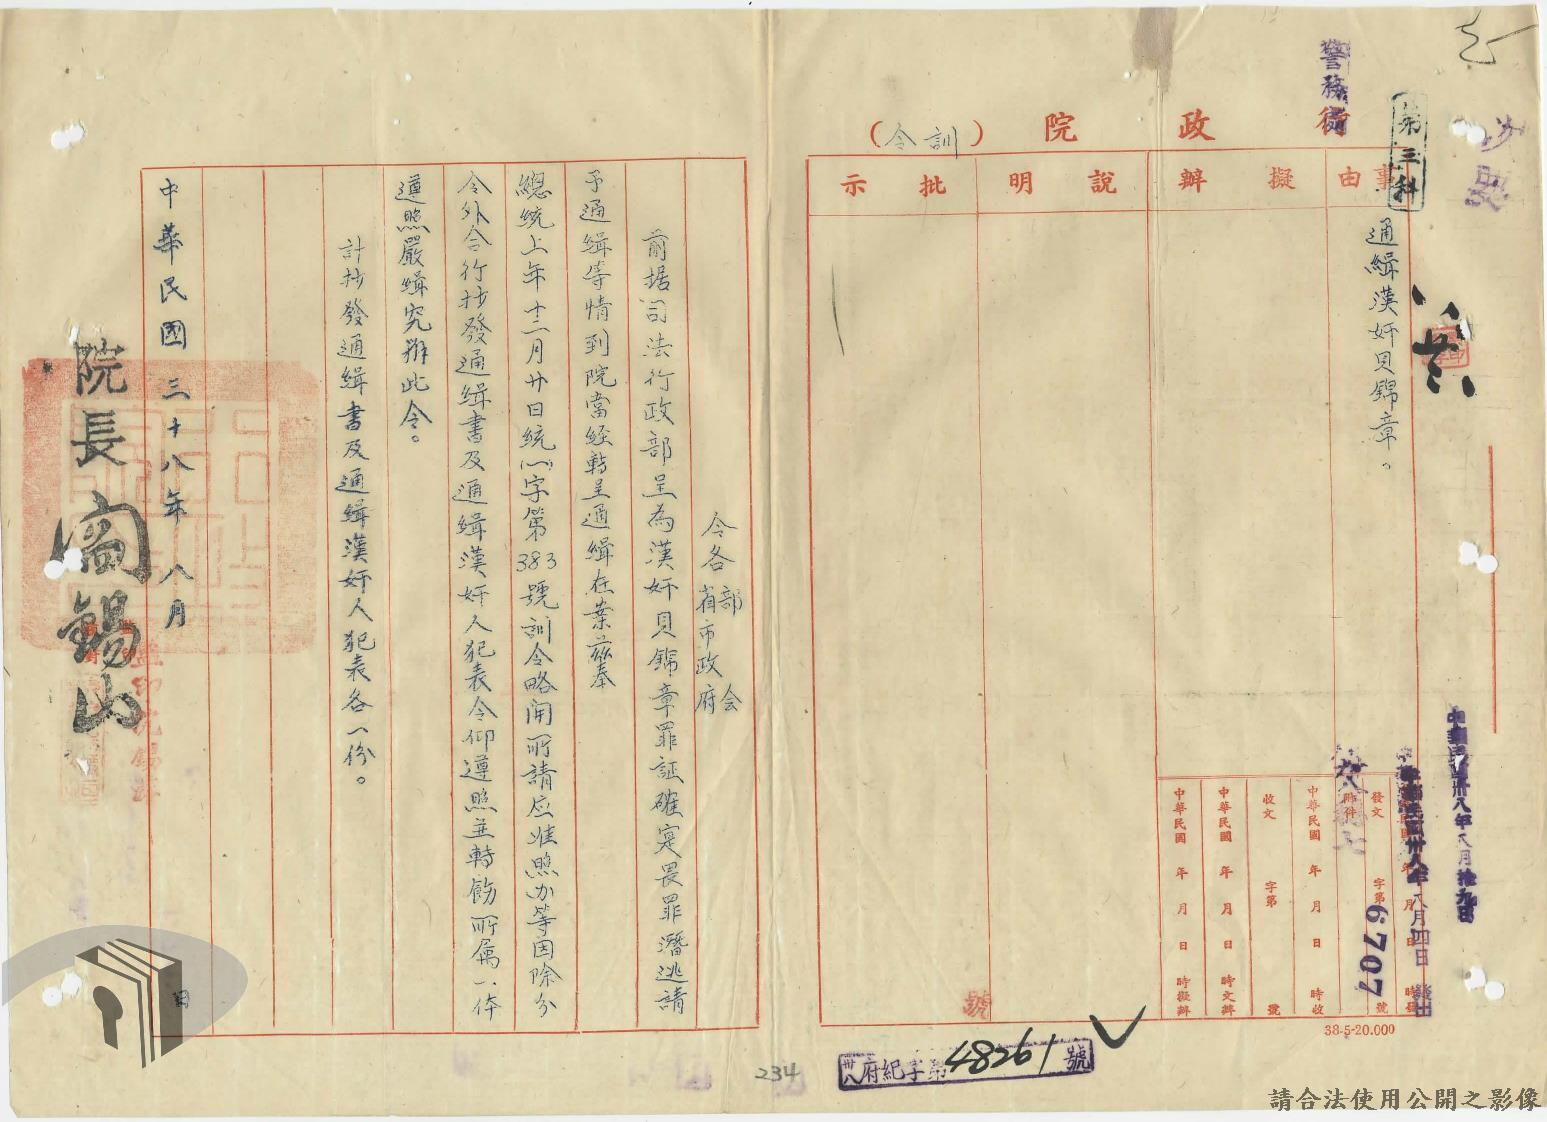 警務
第三科
行政院（訓令）
事由
擬辦
說明
批示
通緝漢奸貝錦章。
中華民國卅八年八月拾九日
中華民國卅八年八月四日
發文 字第6707號
附件
中華民國 年 月 日 時收
收文 字第 號
中華民國 年 月 日 時文辦
中華民國 年 月 日 時擬辦
38-5-20.000
號
卅八府紀字第48261號
234
令各部会省市政府
前据司法行政部呈為漢奸貝錦章罪証確定畏罪潛逃請
予通緝等情到院當經轉呈通緝在案茲奉
總統上年十二月廿日統(一)字第383號訓令略開所請应准照办等因除分
令外合行抄發通緝書及通緝漢奸人犯表令仰遵照並轉飭所属一体
遵照嚴緝究辦此令。
計抄發通緝書及通緝漢奸人犯表各一份。
中華民國三十八年八月
日
院長閻錫山
請合法使用公開之影像